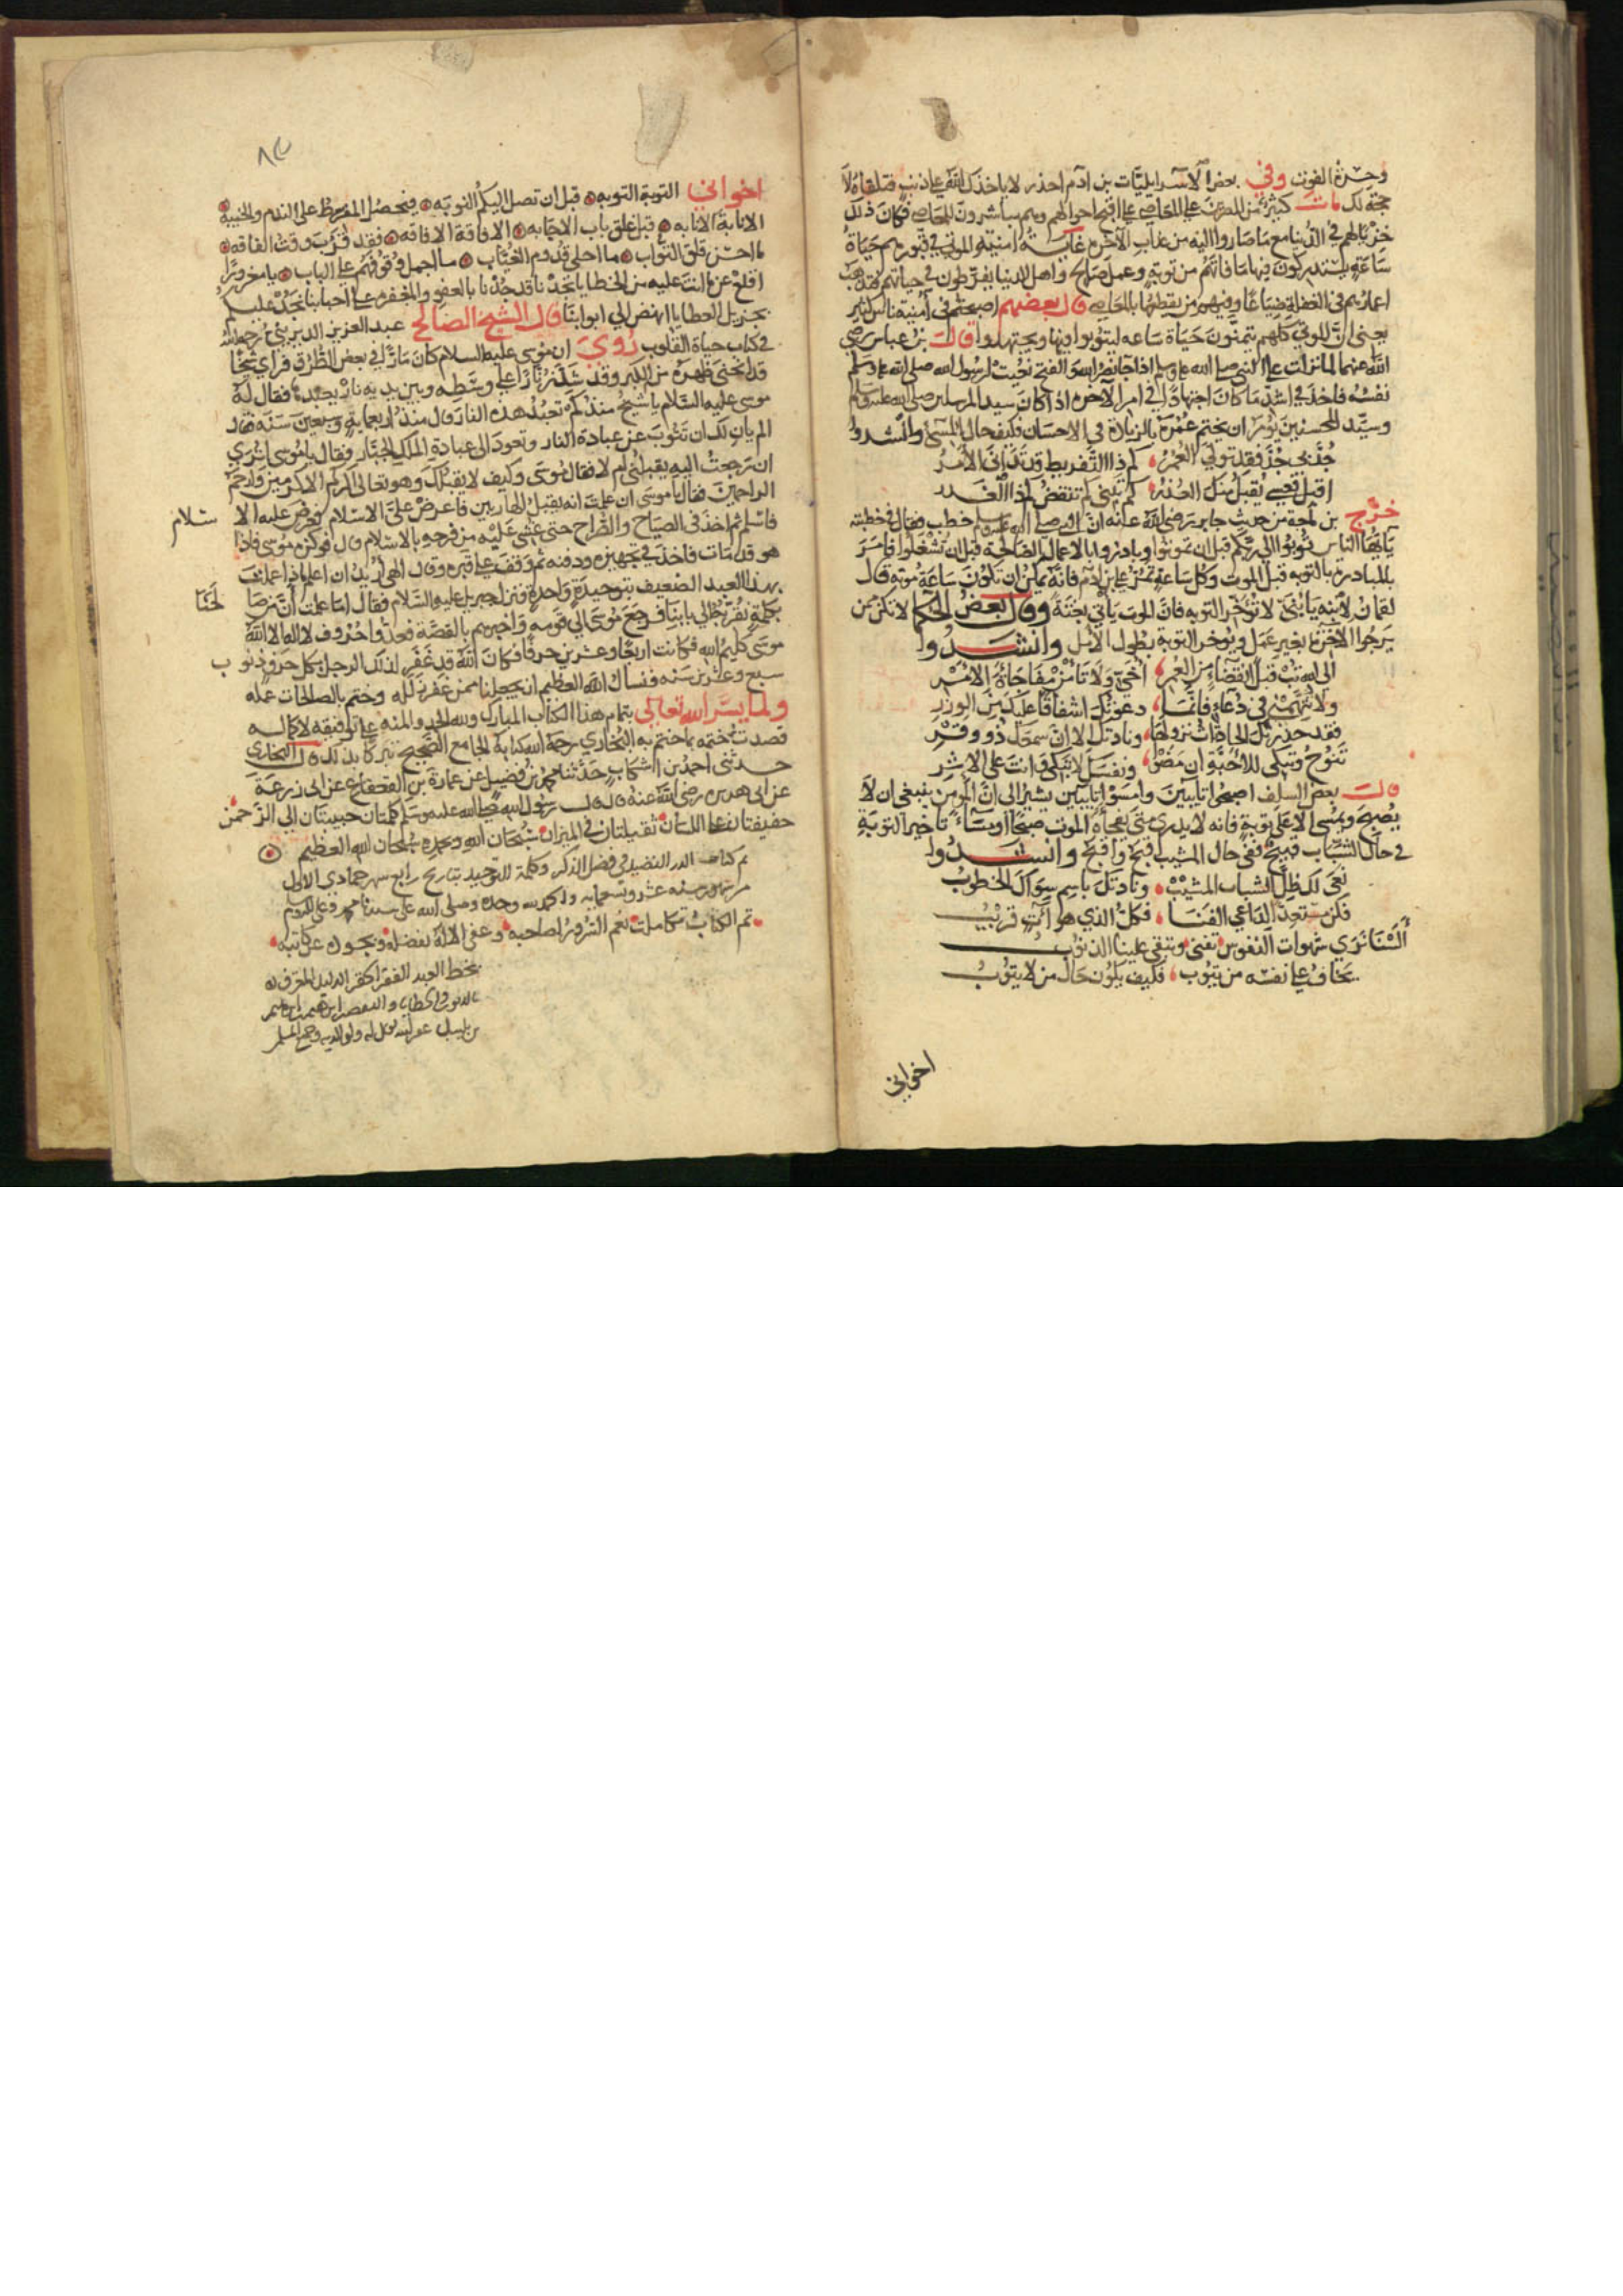 وحسرة الفوت وفي بعض الاسرائيليات بن ادم احذر لا ياخذك الله على ذنب فتلقاه لا
حجة لك مات كثير من المصرين على المعاصي على اقبح احوالهم وهم مباشرون للمعاصي فكان ذلك
خزيا لهم في الدنيا مع ما صاروا اليه من عذاب الآخرة غاية امنية الموتى في قبورهم حياة
ساعة يستدركون فيها ما فاتهم من توبة وعمل صالح واهل الدنيا يفرطون في حياتهم فتذهب
اعمارهم في الغفلة ضياعا ومنهم من يقطعها بالمعاصي قال بعضهم اصبحتم في امنية ناس كثير
يعني ان الموتى كلهم يتمنون حياة ساعه ليتوبوا فيها ويجتهدوا قالت بن عباس رضي
الله عنهما لما نزلت على النبي صلى الله عليه وسلم اذا جاء نصر الله والفتح نعيت لرسول الله صلى الله عليه وسلم
نفسه فاخذ في اشد ما كان اجتهادا في امر الآخره اذا كان سيد المرسلين صلى الله عليه وسلم
وسيد المحسنين يؤمر ان يختم عمره بالزيادة في الاحسان فكيف حال المسئ وانشدوا
جُد بجد فقد تولى العمر كم ذا التفريط قد تدانى الامر
اقبل فعسى يقبل منك العذر كم تبني كم تنقض كم ذا الغدر
خرّج بن ماجة من حديث جابر رضي الله عنه ان النبي صلى الله عليه وسلم خطب فقال في خطبته
يايها الناس توبوا الي ربكم قبل ان تموتوا وبادروا بالاعمال الصالحة قبل ان تشغلوا فامر
بالمبادرة بالتوبه قبل الموت وكل ساعة تمر على بن ادم فانه يمكن ان تكون ساعة موته قال
لقمان لابنه يا بني لا تؤخر التوبه فان الموت ياتي بغتة وقال بعض الحكما لا تكن ممن
يرجوا الاخرة بغير عمل ويؤخر التوبة بطول الامل وانشدوا
الى الله تب قبل انقضاء من العمر اخي ولا تامن مفاجاة الامر
ولا تتهمني في دعاء فانما دعوتك اشفاقا عليك من الوزر
فقد حذرتك الحادثات نزولها ونادتك الا ان سمعك ذو وقر
تنوح وتبكي للاحبة ان مضوا ونفسك لا تبكي وانت على الاثر
قالت بعض السلف اصبحوا تايبين وامسوا تايبين يشير الى ان المومن ينبغي ان لا
يصبح ويمسي الا على توبة فانه لا يدري متى يفجأه الموت صباحا او مساء تاخير التوبة
في حال الشباب قبيح ففي حال المشيب اقبح واقبح وانشدوا
نعى لك ظل الشباب المشيب ونادتك باسم سواك الخطوب
فكن مستعدا لداعي الفنا فكل الذي هو آت قريب
السنا نرى شهوات النفوس تفنى وتبقى علينا الذنوب
يخاف على نفسه من يتوب فكيف يكون حال من لا يتوب
اخواني
اخواني التوبة التوبه قبل ان تصل اليكم النوبه فيحصل المفرط على الندم والخيبة
الانابة الانابه قبل غلق باب الاجابه الافاقة الافاقه فقد قرب وقت الفاقه
ما احسن قلق التواب ما احلى قدوم الغياب ما اجمل وقوفهم على الباب يا مغرورا
اقلع عن ما انت عليه من الخطايا تجدنا قد جدنا بالعفو والمغفره على احبابنا نجد عليك
بجزيل العطايا انهض الي ابوابنا قال الشيخ الصالح عبد العزيز الديريني رحمه الله
في كتاب حياة القلوب روي ان موسى عليه السلام كان مارا في بعض الطرق فراى شيخا
قد انحنى ظهره من الكبر وقد شد زنارا على وسطه وبين يديه نار يعبد فقال له
موسى عليه السلام يا شيخ منذ كم تعبد هذه النار قال منذ اربعماية وسبعين سنة فقال
الم يان لك ان تتوب عن عبادة النار وتعود الى عبادة الملك الجبار فقال يا موسى اترى
ان رجعت اليه يقبلني ام لا فقال موسى وكيف لا يقبلك وهو تعالى اكرم الاكرمين وارحم
الراحمين فقال يا موسى ان علمت انه يقبل الهاربين فاعرض علي الاسلام فعرض عليه الاسلام
فاسلم ثم اخذ في الصياح والصراخ حتى غشي عليه من فرحه بالاسلام قال فوكزه موسى فاذا
هو قد مات فاخذ في تجهيزه ودفنه ثم وقف على قبره وقال الهي اريد ان اعلم ماذا عملت
بهذا العبد الضعيف بتوحيدة واحدة فنزل جبريل عليه السلام فقال اما علمت ان من صالحنا
بكلمة نقربه الي بابنا فرجع موسى الي قومه واخبرهم بالقصة فعدوا حروف لا اله الا الله
موسى كليم الله فكانت اربعا وعشرين حرفا فكان الله قد غفر لذلك الرجل بكل حرف ذنوب
سبع وعشرين سنه فنسال الله العظيم ان يجعلنا ممن غفر زلله وختم بالصالحات عمله
ولما يسر الله تعالى بتمام هذا الكتاب المبارك ولله الحمد والمنه على توفيقه لاكماله
قصدت ختمه بما ختم به البخاري رحمه الله كتابه الجامع الصحيح تبركا بذلك قال البخاري
حدثنى احمد بن اشكاب حدثنا محمد بن فضيل عن عمارة بن القعقاع عن ابي زرعة
عن ابي هريره رضي الله عنه قال قال رسول الله صلى الله عليه وسلم كلمتان حبيبتان الي الرحمن
خفيفتان على اللسان ثقيلتان في الميزان سبحان الله وبحمده سبحان الله العظيم
تم كتاب الدر النضيد في فضل الذكر وكلمة التوحيد بتاريخ رابع شهر جمادي الاول
من شهور سنه عشر وتسعمايه والحمد لله وحده وصلى الله على سيدنا محمد
تم الكتاب تكاملت نعم السرور لصاحبه وعفى الاله بفضله وبجوده عن كاتبه
بخط العبد الفقير الحقير الذليل المعترف
بالذنوب والخطايا والتقصير
غفر الله له ولوالديه وجميع المسلمين